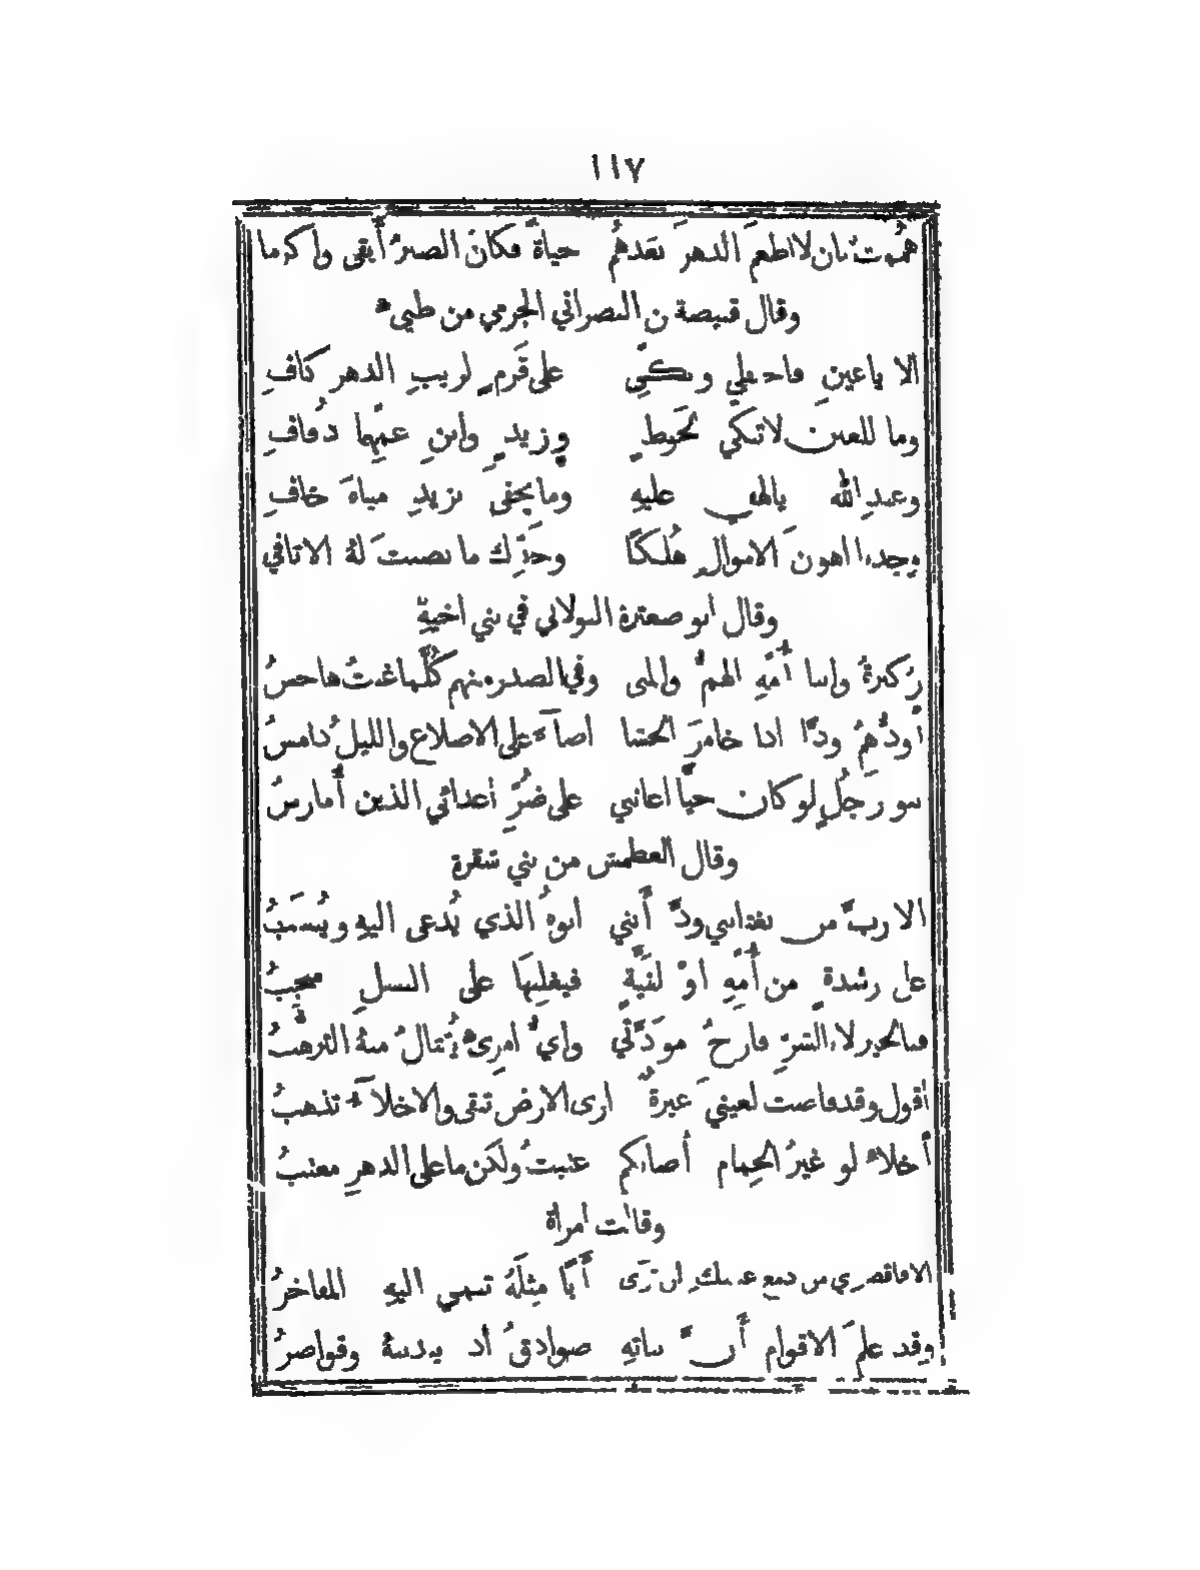 ١١٧
هممت بان لا اطعم الدهر بعدهم حياة فكان الصبر أبقى واكرما
وقال قبيصة بن النصراني الجرمي من طيىء
الا يا عين فاحفلي وبكّي على قَرم لريب الدهر كافِ
وما للعين لا تبكّي لحَوط وزيدٍ وابنِ عمّهما ذُفافِ
وعبدِ الله يا لهفي عليهِ وما يخفى بزيدِ مناةَ خافِ
وجدنا اهونَ الاموال هُلكًا وجدّك ما نصبتَ لهُ الاثافي
وقال ابو صعترة البولاني في بني اخيهِ
ركيزةُ وابنا أمّهِ الهمُّ والمنى وفي الصدر منهم كُلَّما غبتُ هاجسُ
أودُّهمُ ودًّا اذا خامرَ الحشا اضآءَ على الاضلاع والليلُ دامسُ
بنو رَجُلٍ لو كان حيًّا اعانني على ضُرِّ أعدائي الذين أُمارسُ
وقال الغطمش من بني شقرة
الا ربَّ من يغتابني ودَّ أنني ابوهُ الذي يُدعى اليهِ ويُنسَبُ
على رشدةٍ من أُمّهِ أوْ لغيَّةٍ فيغلبُهَا على النسلِ منجبُ
فبالخير لا بالشرِّ فارجُ مودَّتي وايُّ امرىءٍ يُقتالُ منهُ الترهُّبُ
اقول وقد فاضت لعينيَ عبرةٌ ارى الارض تبقى والاخلآءَ تذهبُ
أخلاءِ لو غيرُ الحِمام أصابكم عتبتُ ولكن ما على الدهرِ معتبُ
وقالت امرأة
الا فاقصري من دمع عينيك لن ترَى أبًا مثلَهُ تنمي اليهِ المفاخرُ
وقد علمَ الاقوام أنَّ بناتهِ صوادقُ اذ يندبنهُ وقواصرُ